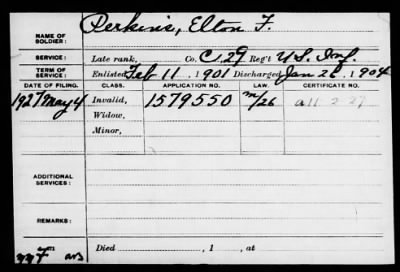 NAME OF SOLDIER: Perkins, Elton F.
SERVICE: Late rank, Co. C 29 Reg't U.S. Inf.
TERM OF SERVICE: Enlisted Feb 11, 1901 Discharged Jan , 1904
DATE OF FILING. CLASS. APPLICATION NO. LAW. CERTIFICATE NO.
1927 May 4 Invalid, 1579550 m/26
Widow,
Minor,
ADDITIONAL SERVICES:
REMARKS:
Died , 1 , at